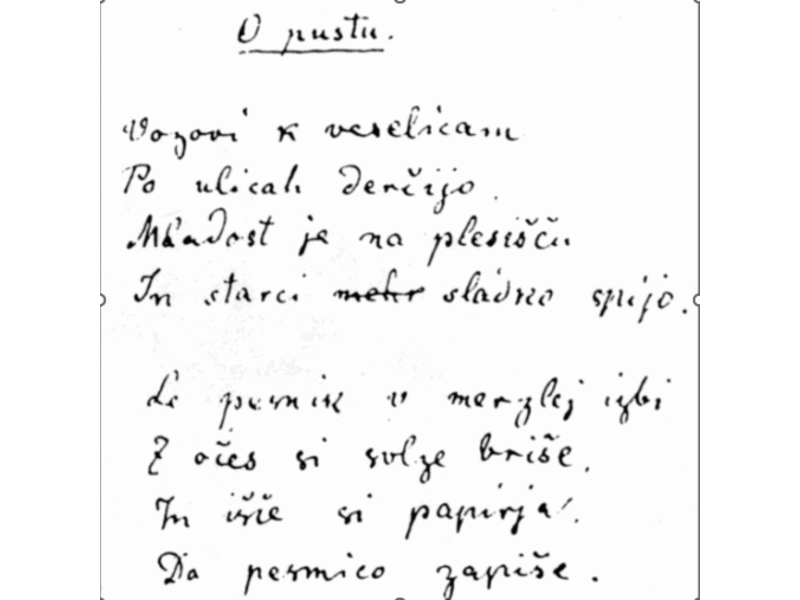 O pustu.
Vozovi k veselicam
Po ulicah derčijo.
Mladost je na plesišču
In starci mehr sladko spijo.
Le pesnik v merzlej izbi
Z očes si solze briše,
In išče si papirja,
Da pesmico zapiše.